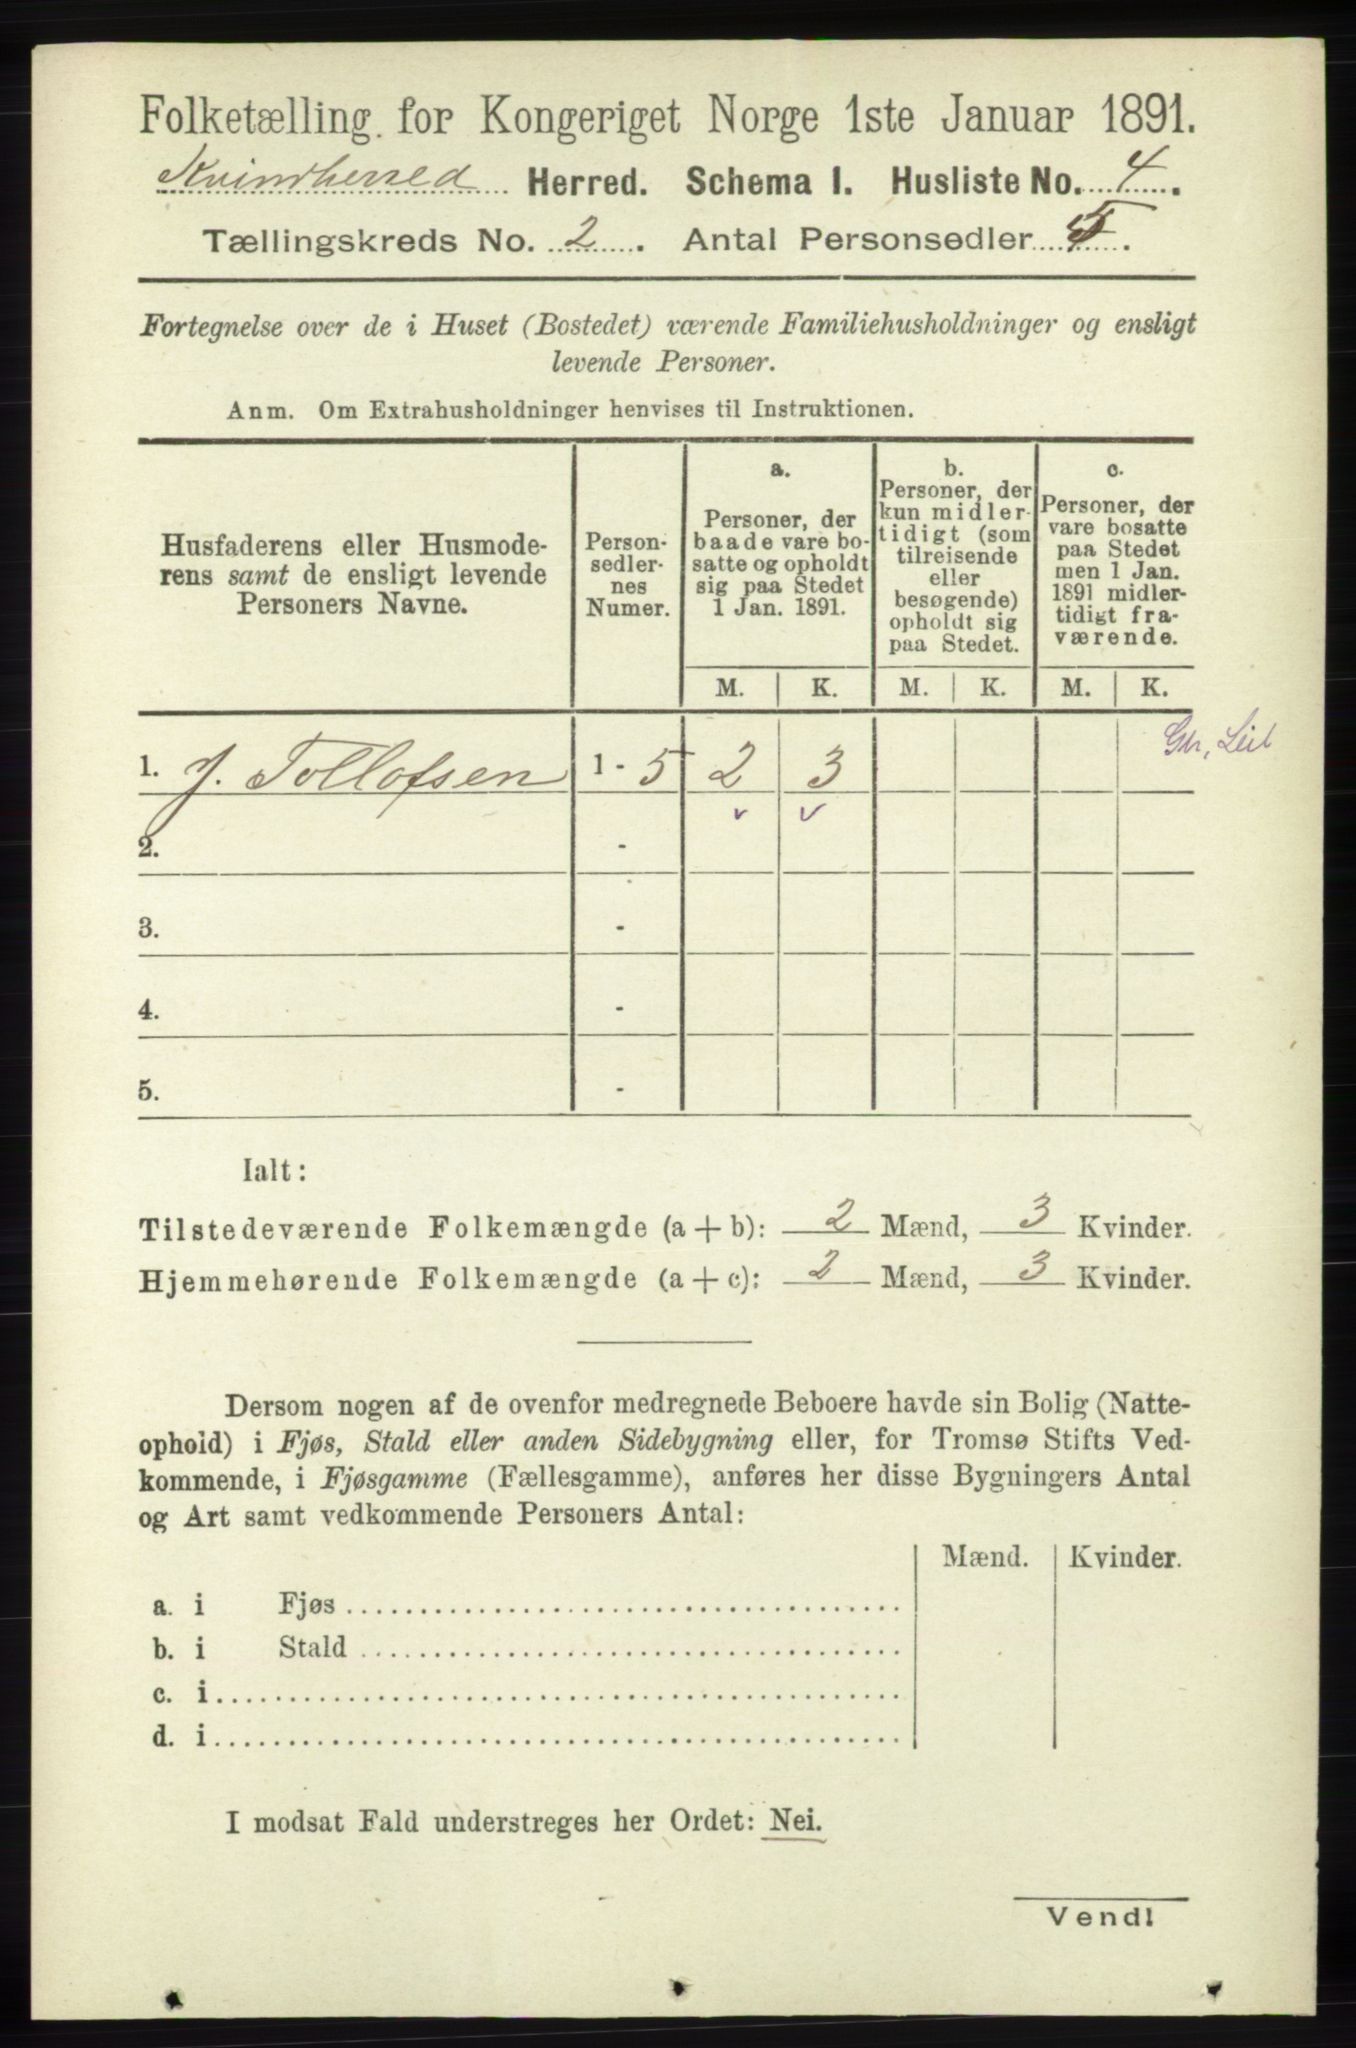 Folketælling for Kongeriget Norge 1ste Januar 1891.
Kvindherred Herred. Schema I. Husliste No. 4.
Tællingskreds No. 2. Antal Personsedler 5.
Fortegnelse over de i Huset (Bostedet) værende Familiehusholdninger og ensligt
levende Personer.
Anm. Om Extrahusholdninger henvises til Instruktionen.
Husfaderens eller Husmode-
rens samt de ensligt levende
Personers Navne.
Person-
sedler-
nes
Numer.
a.
Personer, der
baade vare bo-
satte og opholdt
sig paa Stedet
1 Jan. 1891.
b.
Personer, der
kun midler-
tidigt (som
tilreisende
eller
besøgende)
opholdt sig
paa Stedet.
c.
Personer, der
vare bosatte
paa Stedet
men 1 Jan.
1891 midler-
tidigt fra-
værende.
M. K. M. K. M. K.
1. J. Tollofsen 1 - 5 2 3
2. -
3. -
4. -
5. -
Ialt:
Tilstedeværende Folkemængde (a + b): 2 Mænd, 3 Kvinder.
Hjemmehørende Folkemængde (a + c): 2 Mænd, 3 Kvinder.
Dersom nogen af de ovenfor medregnede Beboere havde sin Bolig (Natte-
ophold) i Fjøs, Stald eller anden Sidebygning eller, for Tromsø Stifts Ved-
kommende, i Fjøsgamme (Fællesgamme), anføres her disse Bygningers Antal
og Art samt vedkommende Personers Antal:
Mænd. Kvinder.
a. i Fjøs
b. i Stald
c. i
d. i
I modsat Fald understreges her Ordet: Nei.
Vend!